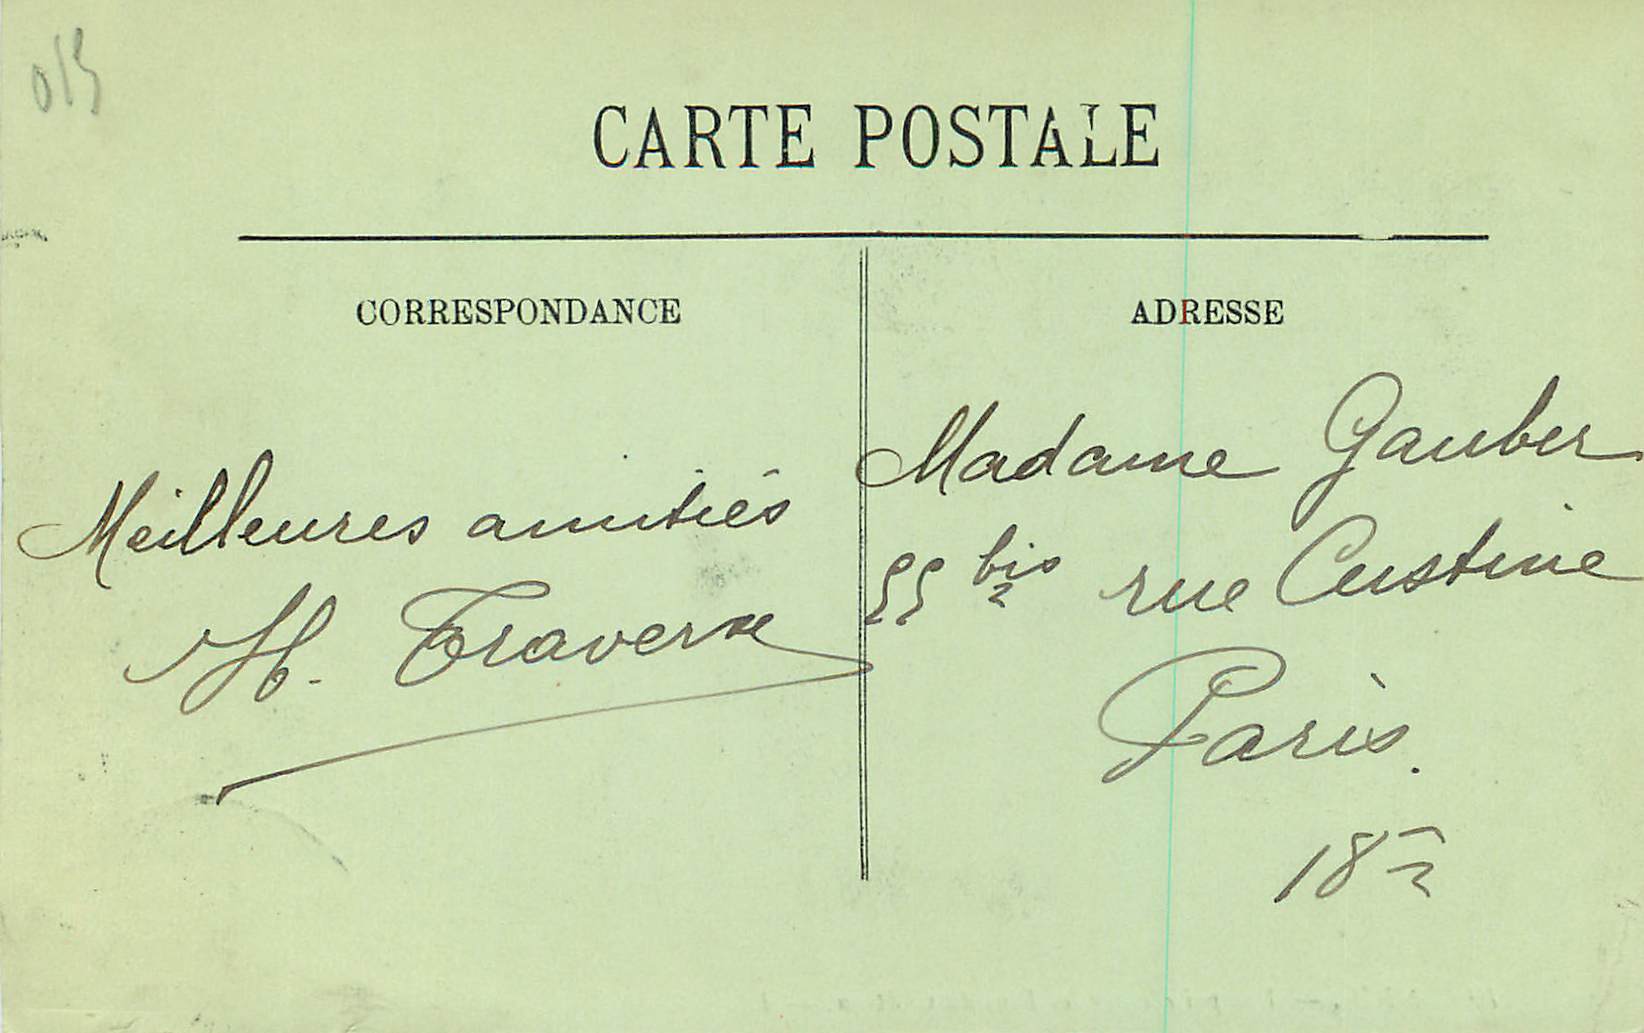 CARTE POSTALE
CORRESPONDANCE
Meilleures amitiés
H. Traverse
ADRESSE
Madame Gauber
55 bis rue Custine
Paris.
18